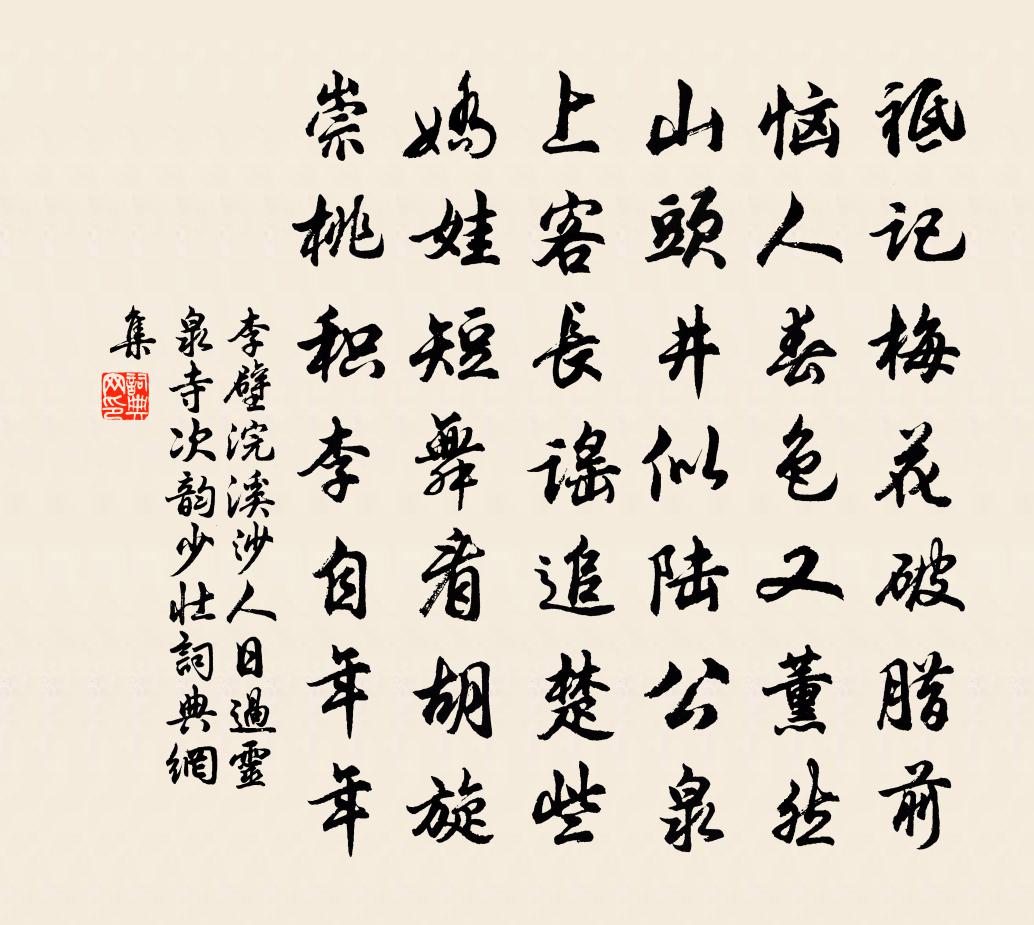 祗记梅花破腊前
恼人春色又薰然
山頭井似陆公泉
上客長謠追楚些
嬌娃短舞看胡旋
崇桃积李自年年
李壁浣溪沙人日過靈
泉寺次韵少壮詞典網
集
詞典网印